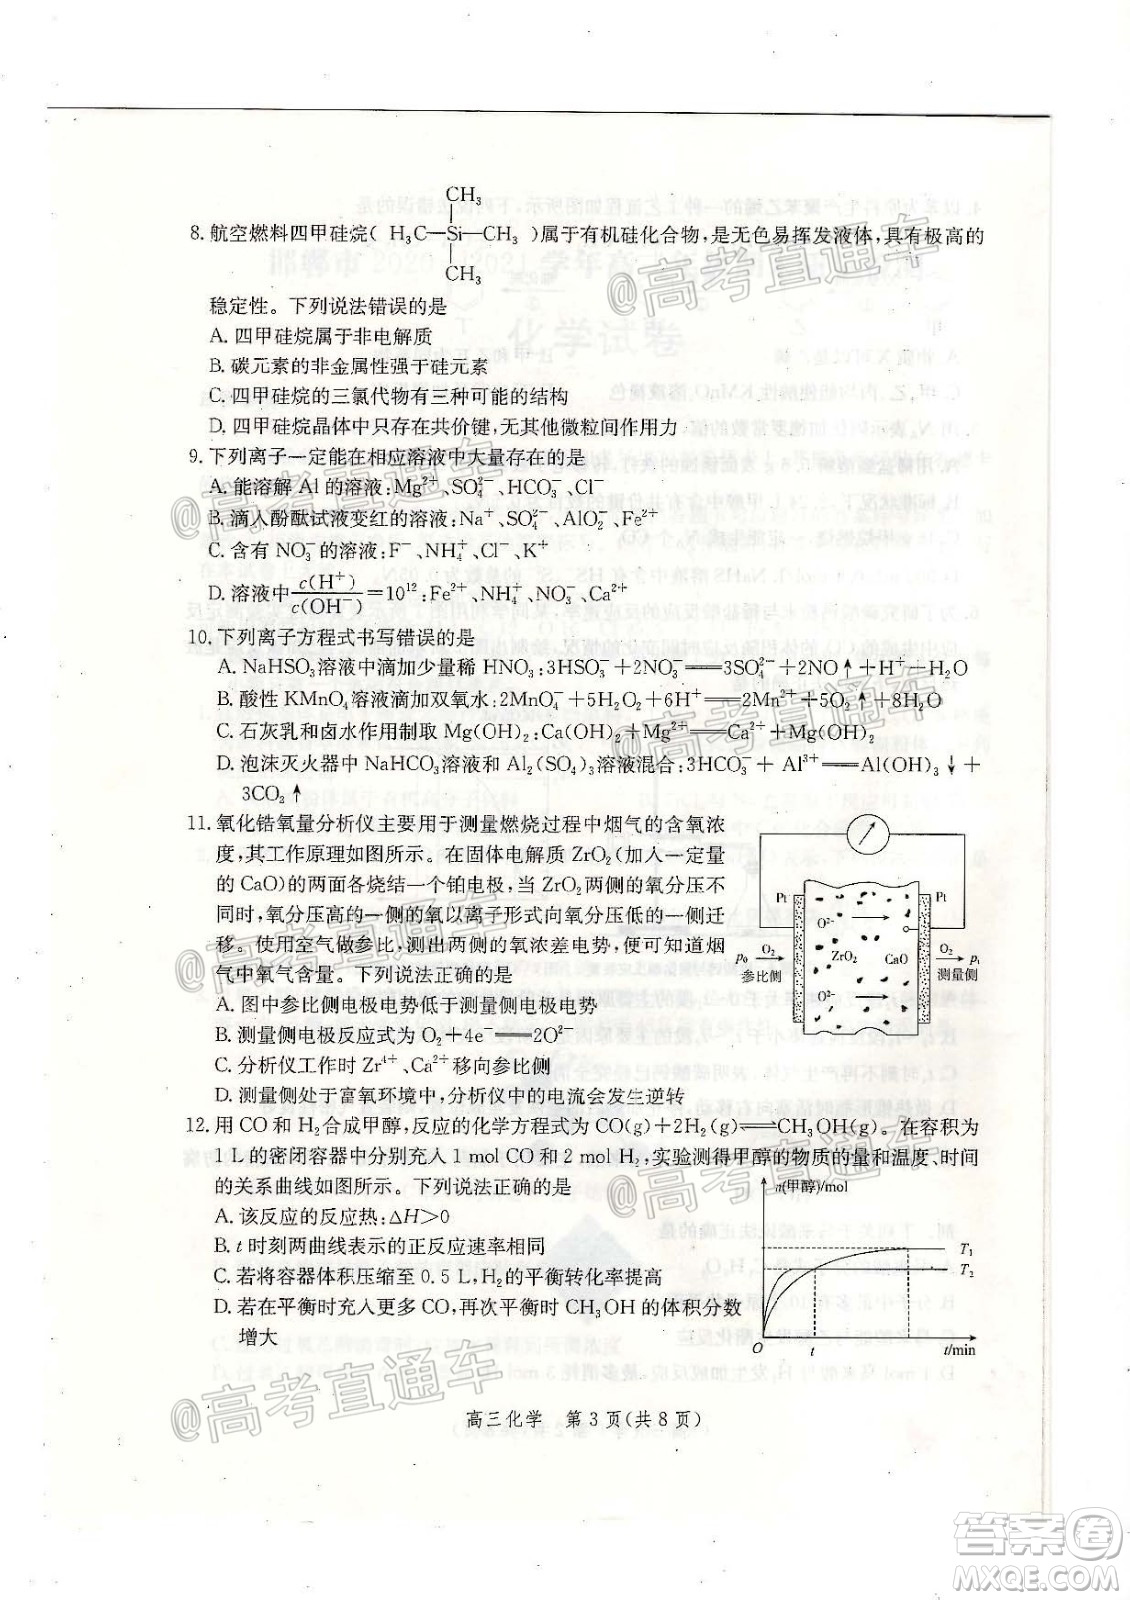 CH₃
8. 航空燃料四甲硅烷( H₃C—Si—CH₃ )属于有机硅化合物,是无色易挥发液体,具有极高的
CH₃
稳定性。下列说法错误的是
A. 四甲硅烷属于非电解质
B. 碳元素的非金属性强于硅元素
C. 四甲硅烷的三氯代物有三种可能的结构
D. 四甲硅烷晶体中只存在共价键,无其他微粒间作用力
9. 下列离子一定能在相应溶液中大量存在的是
A. 能溶解 Al 的溶液:Mg²⁺、SO₄²⁻、HCO₃⁻、Cl⁻
B. 滴入酚酞试液变红的溶液:Na⁺、SO₄²⁻、AlO₂⁻、Fe²⁺
C. 含有 NO₃⁻ 的溶液:F⁻、NH₄⁺、Cl⁻、K⁺
D. 溶液中 c(H⁺)/c(OH⁻)=10¹²:Fe²⁺、NH₄⁺、NO₃⁻、Ca²⁺
10. 下列离子方程式书写错误的是
A. NaHSO₃ 溶液中滴加少量稀 HNO₃:3HSO₃⁻+2NO₃⁻══3SO₄²⁻+2NO↑+H⁺+H₂O
B. 酸性 KMnO₄ 溶液滴加双氧水:2MnO₄⁻+5H₂O₂+6H⁺══2Mn²⁺+5O₂↑+8H₂O
C. 石灰乳和卤水作用制取 Mg(OH)₂:Ca(OH)₂+Mg²⁺══Ca²⁺+Mg(OH)₂
D. 泡沫灭火器中 NaHCO₃ 溶液和 Al₂(SO₄)₃ 溶液混合:3HCO₃⁻+Al³⁺══Al(OH)₃↓+
3CO₂↑
11. 氧化锆氧量分析仪主要用于测量燃烧过程中烟气的含氧浓
度,其工作原理如图所示。在固体电解质 ZrO₂(加入一定量
的 CaO)的两面各烧结一个铂电极,当 ZrO₂ 两侧的氧分压不
同时,氧分压高的一侧的氧以离子形式向氧分压低的一侧迁
移。使用空气做参比,测出两侧的氧浓差电势,便可知道烟
气中氧气含量。下列说法正确的是
A. 图中参比侧电极电势低于测量侧电极电势
B. 测量侧电极反应式为 O₂+4e⁻══2O²⁻
C. 分析仪工作时 Zr⁴⁺、Ca²⁺移向参比侧
D. 测量侧处于富氧环境中,分析仪中的电流会发生逆转
Pt
Pt
O²⁻
p₀
O₂
参比侧
ZrO₂
CaO
O₂
p₁
测量侧
O²⁻
12. 用 CO 和 H₂ 合成甲醇,反应的化学方程式为 CO(g)+2H₂(g)⇌CH₃OH(g)。在容积为
1 L 的密闭容器中分别充入 1 mol CO 和 2 mol H₂,实验测得甲醇的物质的量和温度、时间
的关系曲线如图所示。下列说法正确的是
A. 该反应的反应热:ΔH>0
B. t 时刻两曲线表示的正反应速率相同
C. 若将容器体积压缩至 0.5 L,H₂ 的平衡转化率提高
D. 若在平衡时充入更多 CO,再次平衡时 CH₃OH 的体积分数
增大
n(甲醇)/mol
T₁
T₂
O
t
t/min
高三化学 第 3 页(共 8 页)
@高考直通车
@高考直通车
@高考直通车
@高考直通车
@高考直通车
@高考直通车
@高考直通车
答案卷
MXQE.COM